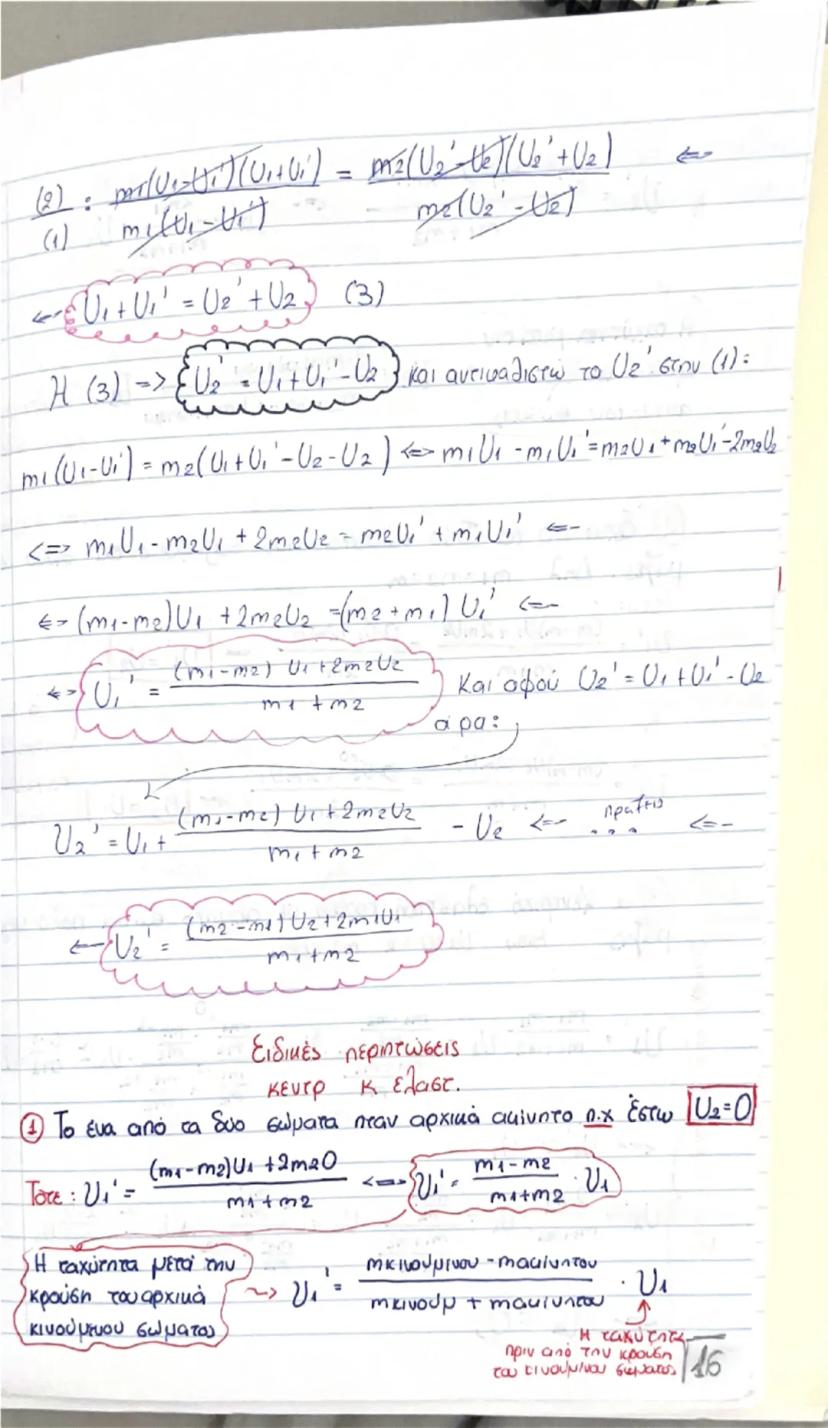 (2)/(1) : m1(U1-U1')(U1+U1')/m1(U1-U1') = m2(U2'-U2)(U2'+U2)/m2(U2'-U2) <=
<- U1+U1' = U2'+U2 (3)
Η (3) => U2' = U1+U1'-U2 και αντικαθιστώ το U2' στην (1):
m1(U1-U1') = m2(U1+U1'-U2-U2) <=> m1U1 - m1U1' = m2U1+m2U1'-2m2U2
<=> m1U1 - m2U1 + 2m2U2 = m2U1' + m1U1' <=-
<=> (m1-m2)U1 + 2m2U2 = (m2+m1) U1' <=-
<=> U1' = (m1-m2) U1+2m2U2 / m1+m2 Και αφού U2' = U1+U1'-U2
άρα:
U2' = U1 + (m1-m2) U1+2m2U2 / m1+m2 - U2 <=- πράξεις ... <=-
<- U2' = (m2-m1)U2+2m1U1 / m1+m2
Ειδικές περιπτώσεις
κεντρ κ ελαστ.
① Το ένα από τα δυο σώματα ήταν αρχικά ακίνητο π.χ έστω U2=0
Τότε: U1' = (m1-m2)U1+2m20 / m1+m2 <=> U1' = m1-m2 / m1+m2 · U1
Η ταχύτητα μετά την
κρούση του αρχικά
κινούμενου σώματος
~> U1' = mκινούμενου - mακίνητου / mκινούμ + mακίνητου · U1
Η ταχύτητα
πριν από την κρούση
του κινούμενου σώματος
16